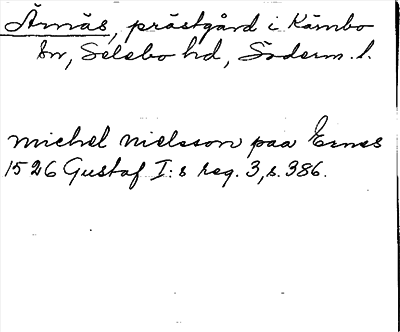 Ärnäs, prästgård i Kärnbo
sn, Selebo hd, Söderm. l.
Michel Nielsson paa Ernes
1526 Gustaf I:s reg. 3, s. 386.